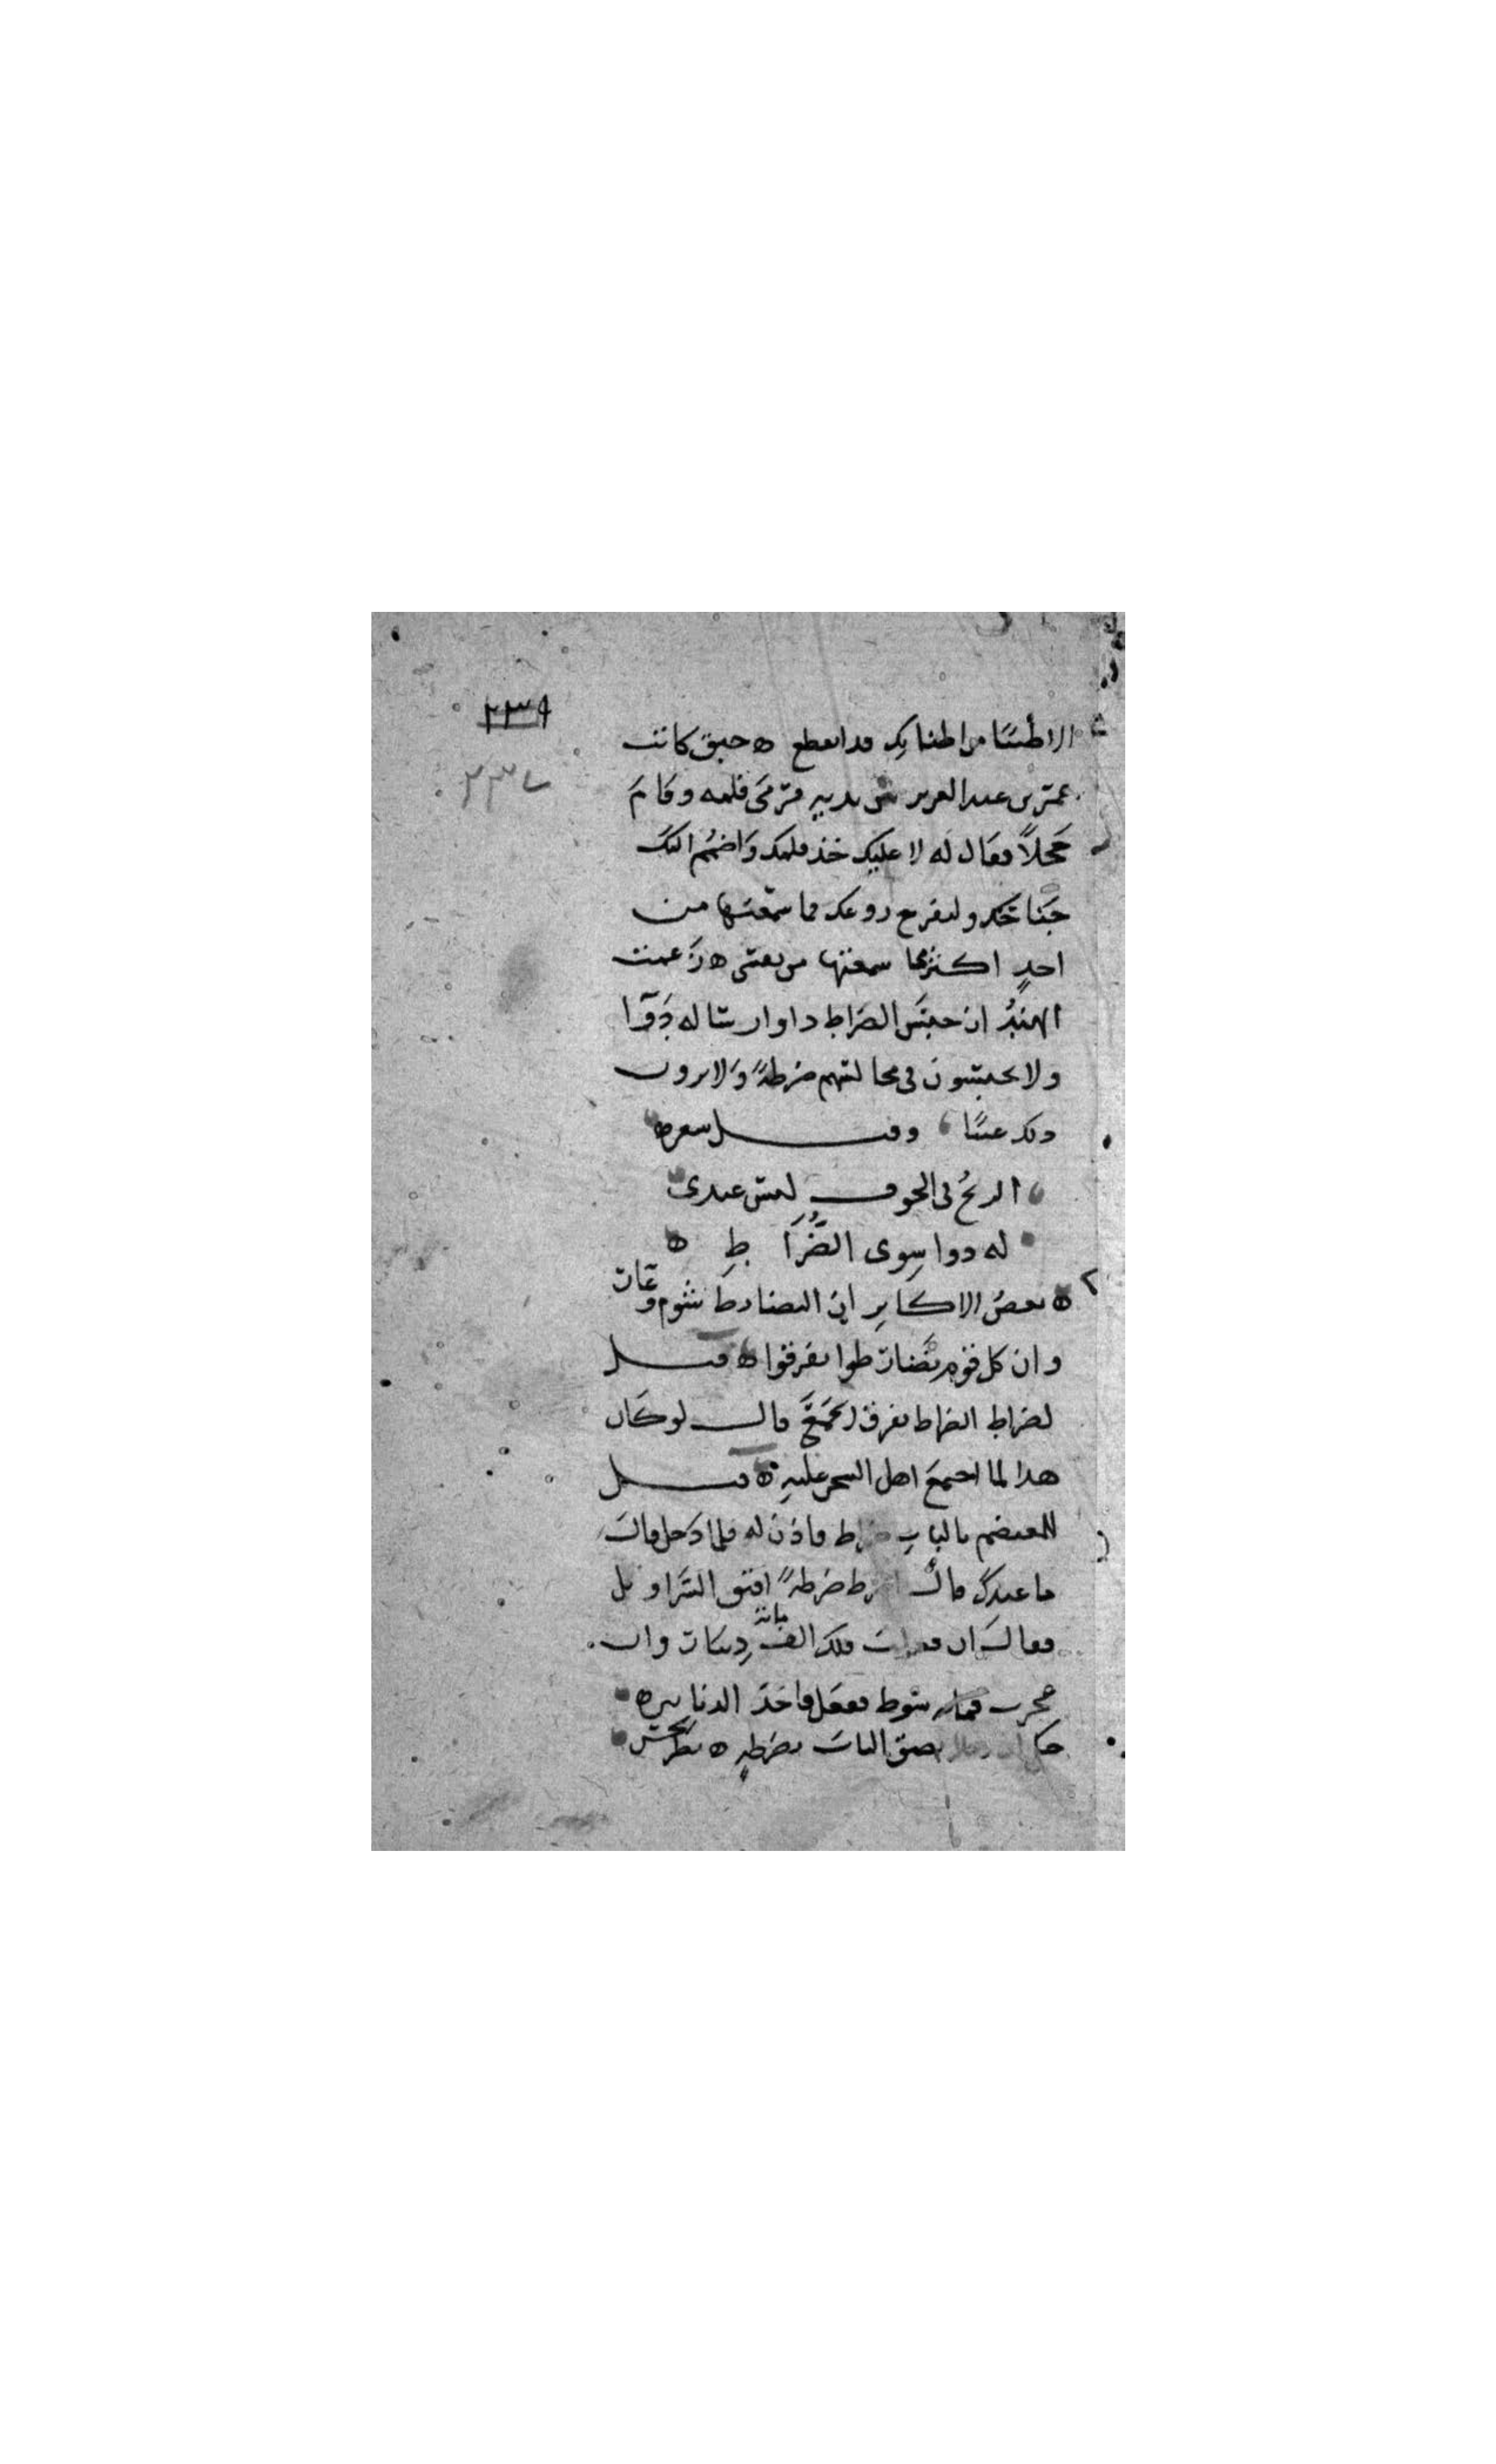 ٢٣٩
٢٣٧
الا طنبًا من اطنابك قد انقطع ه حبق كاتب
عمر بن عبد العزيز بين يديه فرمى قلمه وقام
خجلًا فقال له لا عليك خذ قلمك واضمم اليك
جناحك وليفرخ روعك فما سمعتها من
احدٍ اكثر مما سمعتها من نفسى ه زعمت
الهند ان حبس الضراط داء وارساله دواء
ولا يحبسون فى مجالسهم ضرطةً ولا يرون
ذلك عيبًا وقيل شعره
الريح فى الجوف ليس عندى
له دوا سوى الضراط ه
ه بعض الاكابر ان التضارط شوم وعار
وان كل قوم تضارطوا تفرقوا ه قيل
لضراط الضراط تفرق الجمع قال لو كان
هذا لما اجتمع اهل السجن عليه ه قيل
للمعتصم بالباب ضراط فاذن له فلما دخل قال
ما عندك قال اضرط ضرطةً افتق السراويل
فقال ان فعلت فلك الف دينار وان
عجزت فمائة سوط ففعل فاخذ الدنانير ه
يصفق الباب بضرطةٍ ه